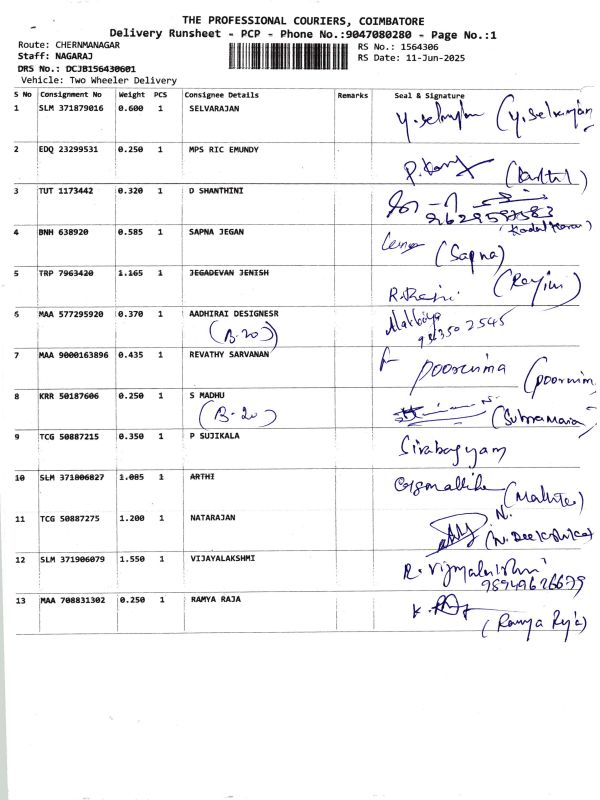 THE PROFESSIONAL COURIERS, COIMBATORE
Delivery Runsheet - PCP - Phone No.:9047080280 - Page No.:1
Route: CHERNMANAGAR
RS No.: 1564306
Staff: NAGARAJ
RS Date: 11-Jun-2025
DRS No.: DCJB156430601
Vehicle: Two Wheeler Delivery
S No Consignment No Weight PCS Consignee Details Remarks Seal & Signature
1 SLM 371879016 0.600 1 SELVARAJAN
2 EDQ 23299531 0.250 1 MPS RIC EMUNDY
3 TUT 1173442 0.320 1 D SHANTHINI
4 BNH 638920 0.585 1 SAPNA JEGAN
(Sapna)
5 TRP 7963420 1.165 1 JEGADEVAN JENISH
6 MAA 577295920 0.370 1 AADHIRAI DESIGNESR
(B-20)
984350 2545
7 MAA 9000163896 0.435 1 REVATHY SARVANAN
Poornima (Poornima
8 KRR 50187606 0.250 1 S MADHU
(B-20)
9 TCG 50887215 0.350 1 P SUJIKALA
Sirabagyam
10 SLM 371806827 1.085 1 ARTHI
11 TCG 50887275 1.200 1 NATARAJAN
12 SLM 371906079 1.550 1 VIJAYALAKSHMI
98949626679
13 MAA 708831302 0.250 1 RAMYA RAJA
(Ramya Raja)